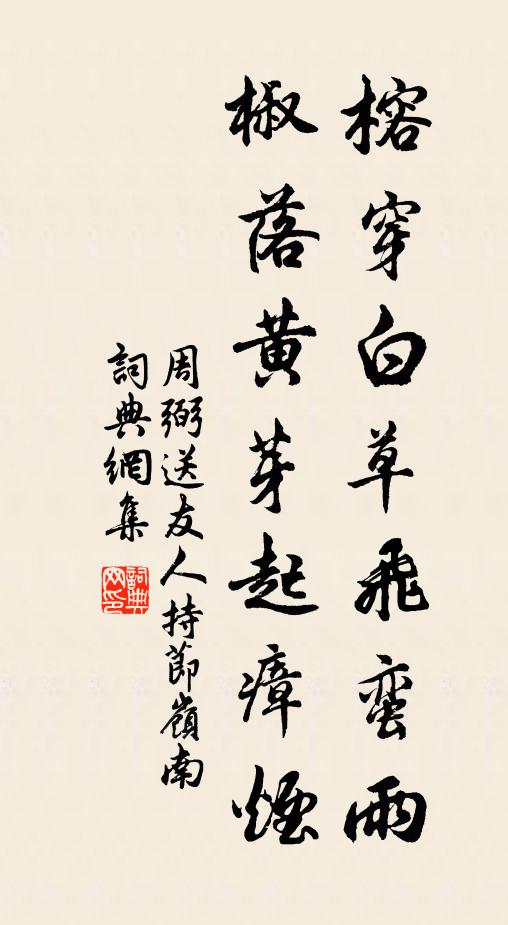 榕穿白草飛蛮雨
椒落黄芽起瘴煙
周弼送友人持節嶺南
詞典網集
詞典网印